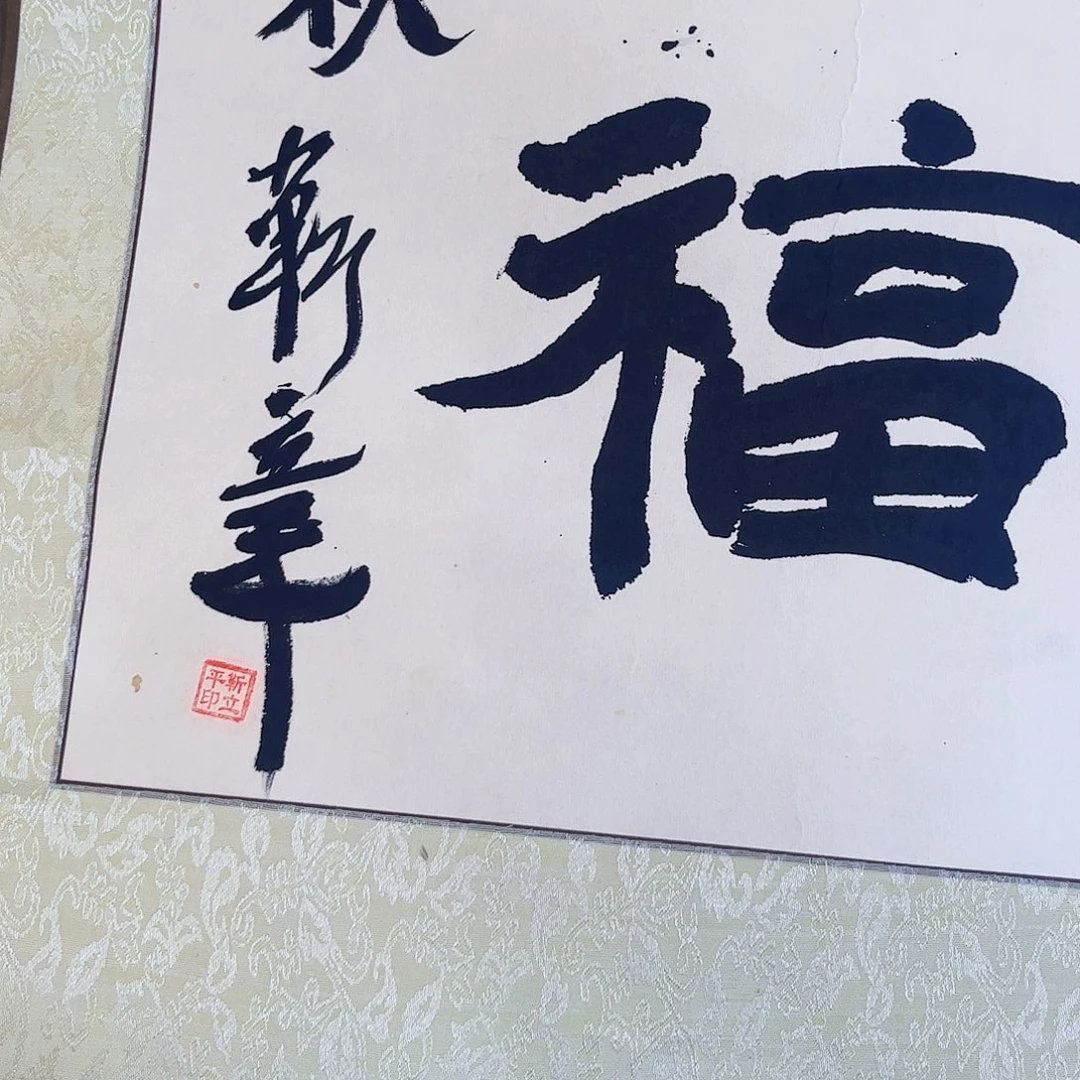 福
秋靳立平
靳立
平印